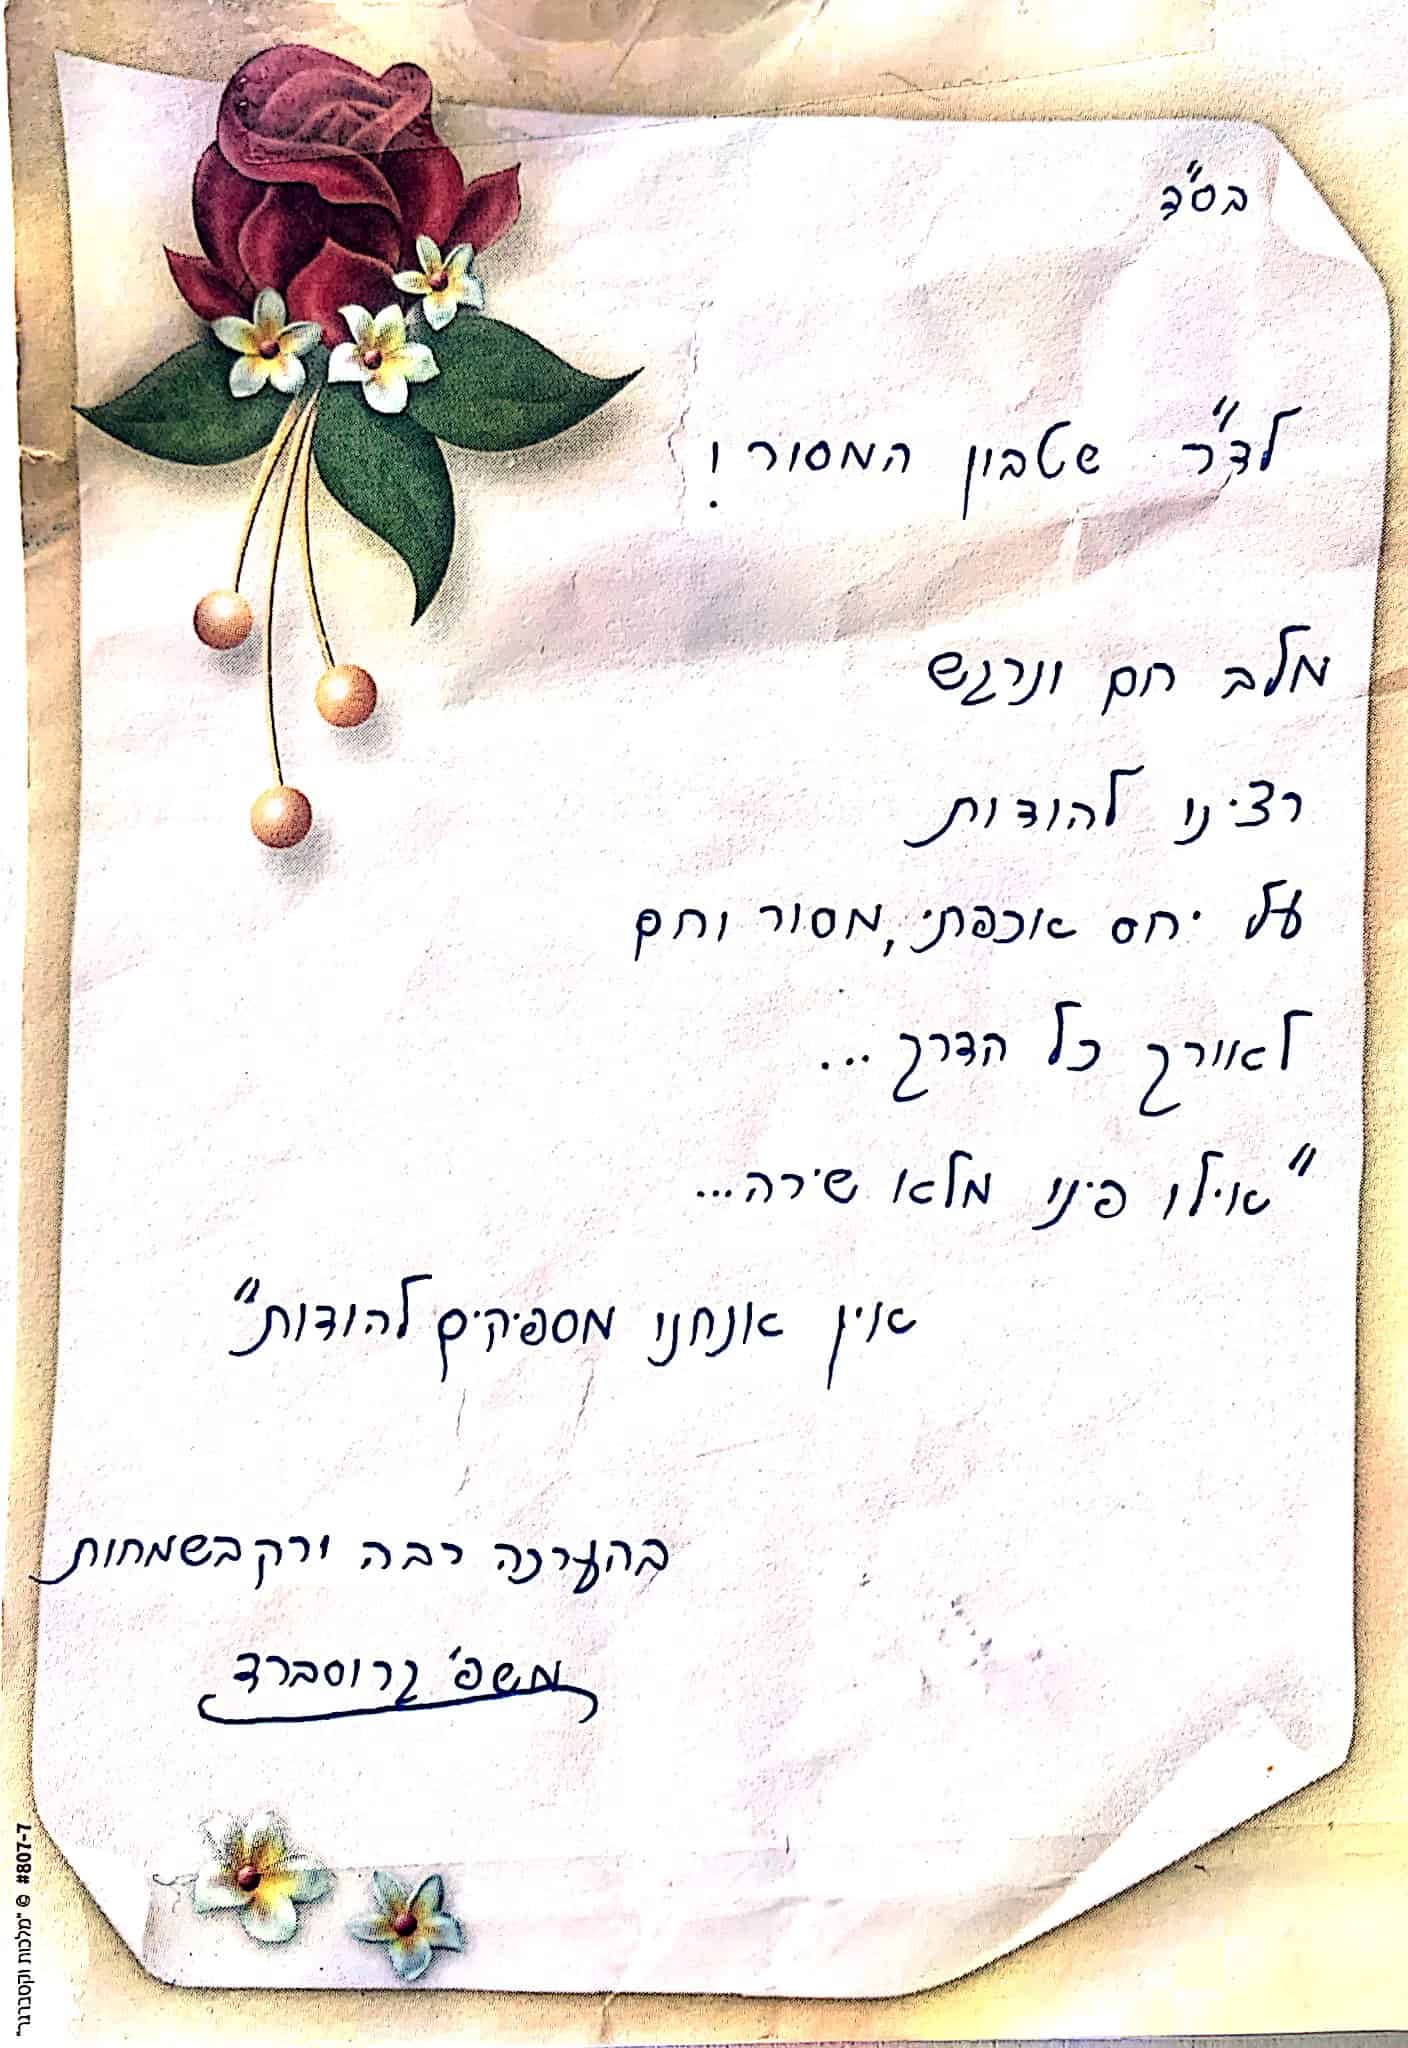 בס"ד
לד"ר שטבון המסור!
מלב חם ונרגש
רצינו להודות
על יחס אכפתי, מסור וחם
לאורך כל הדרך...
"אילו פינו מלא שירה...
אין אנחנו מספיקים להודות"
בהערכה רבה ורק בשמחות
משפ' גרוסברד
#807-7 ©